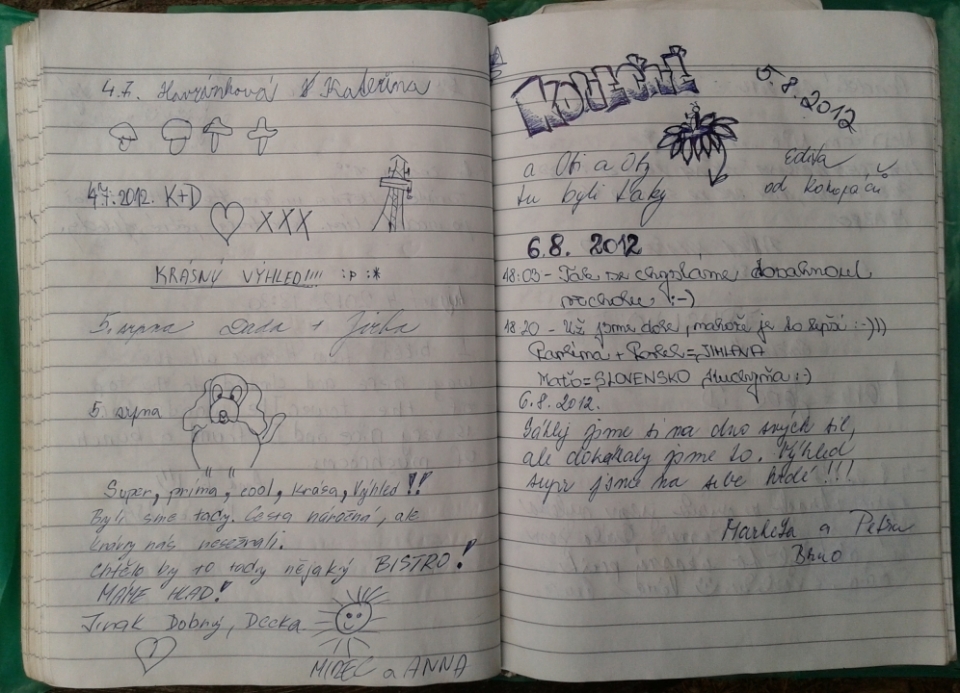 4.7. Havránková Kateřina
4.7.2012. K+D
XXX
KRÁSNÝ VÝHLED!!!! :P :*
5. srpna Dada + Jirka
5. srpna
Super, príma, cool, krása, Výhled!!
Byli sme tady. Cesta náročná, ale
krávy nás nesežrali.
chtělo by to tady nějaký BISTRO!
MÁME HLAD!
Jinak Dobrý, Decka
MIREC a ANNA
KONEČNĚ
5.8.2012
a Oti a Oty
tu byli taky
Edita
od Kokopáčů
6.8. 2012
18:03 - Tak se chystáme dosáhnout
vrcholu :-)
18:20 - Už jsme dole, nahoře je to lepší :-)))
+ = JIHLAVA
Maťo = SLOVENSKO :-)
6.8.2012.
Sáhly jsme si na dno svých sil,
ale dokázaly jsme to. Výhled
supr jsme na sebe hrdé!!!
Markéta a Petra
Brno